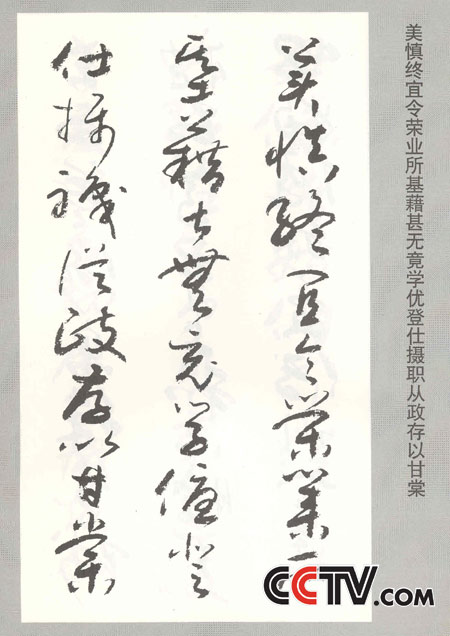 美慎终宜令荣业所基藉甚无竟学优登仕摄职从政存以甘棠
美慎終宜令榮業
基藉甚無竟學優登
仕攝職從政存以甘棠
CCTV.com